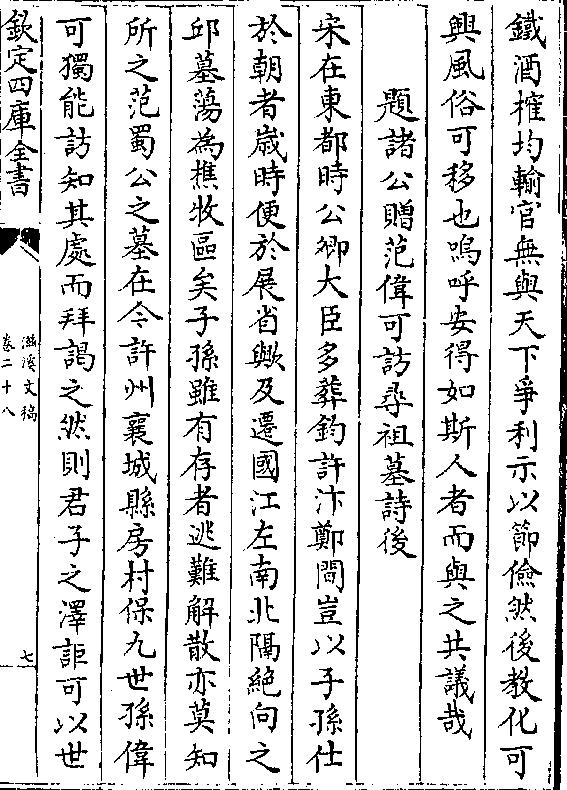 鐵酒榷均輸官無與天下爭利示以節儉然後教化可
興風俗可移也嗚呼安得如斯人者而與之共議哉
題諸公贈范偉可訪尋祖墓詩後
宋在東都時公卿大臣多葬鈞許汴鄭間豈以子孫仕
於朝者歲時便於展省歟及遷國江左南北隔絶向之
邱墓蕩為樵牧區矣子孫雖有存者逃難解散亦莫知
所之范蜀公之墓在今許州襄城縣房村保九世孫偉
可獨能訪知其處而拜謁之然則君子之澤詎可以世
欽定四庫全書
滋溪文稿
卷二十八
七